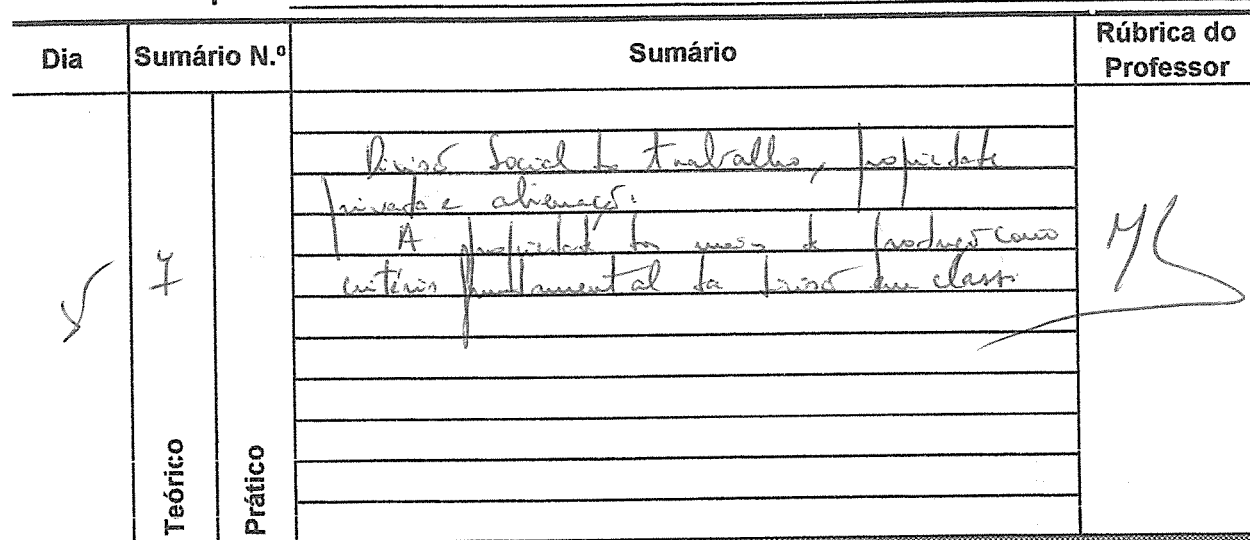 Dia Sumário N.º Sumário Rúbrica do Professor
Divisão Social do trabalho, propriedade
privada e alienação.
A propriedade dos meios de produção como
critério fundamental da divisão em classes.
7
Teórico
Prático